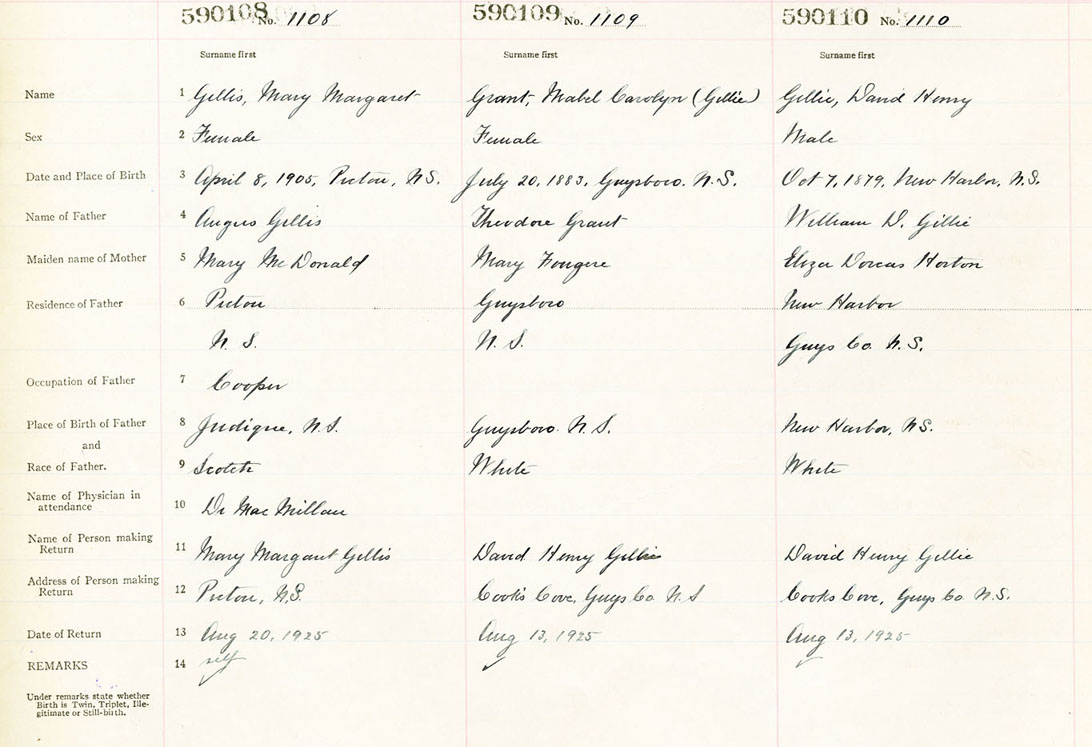 590108 No. 1108 590109 No. 1109 590110 No. 1110
Surname first Surname first Surname first
Name 1 Gillis, Mary Margaret Grant, Mabel Carolyn (Gillie) Gillie, David Henry
Sex 2 Female Female Male
Date and Place of Birth 3 April 8, 1905, Pictou, N.S. July 20, 1883, Guysboro. N.S. Oct 7, 1879, New Harbor, N.S.
Name of Father 4 Angus Gillis Theodore Grant William D. Gillie
Maiden name of Mother 5 Mary McDonald Mary Fougere Eliza Dorcas Horton
Residence of Father 6 Pictou Guysboro New Harbor
N. S. N. S. Guys Co. N.S.
Occupation of Father 7 Cooper
Place of Birth of Father 8 Judique, N.S. Guysboro. N.S. New Harbor, N.S.
and
Race of Father. 9 Scotch White White
Name of Physician in
attendance 10 Dr MacMillan
Name of Person making
Return 11 Mary Margaret Gillis David Henry Gillie David Henry Gillie
Address of Person making
Return 12 Pictou, N.S. Cooks Cove, Guys Co N.S Cooks Cove, Guys Co N.S.
Date of Return 13 Aug 20, 1925 Aug 13, 1925 Aug 13, 1925
REMARKS 14 self
Under remarks state whether
Birth is Twin, Triplet, Ille-
gitimate or Still-birth.